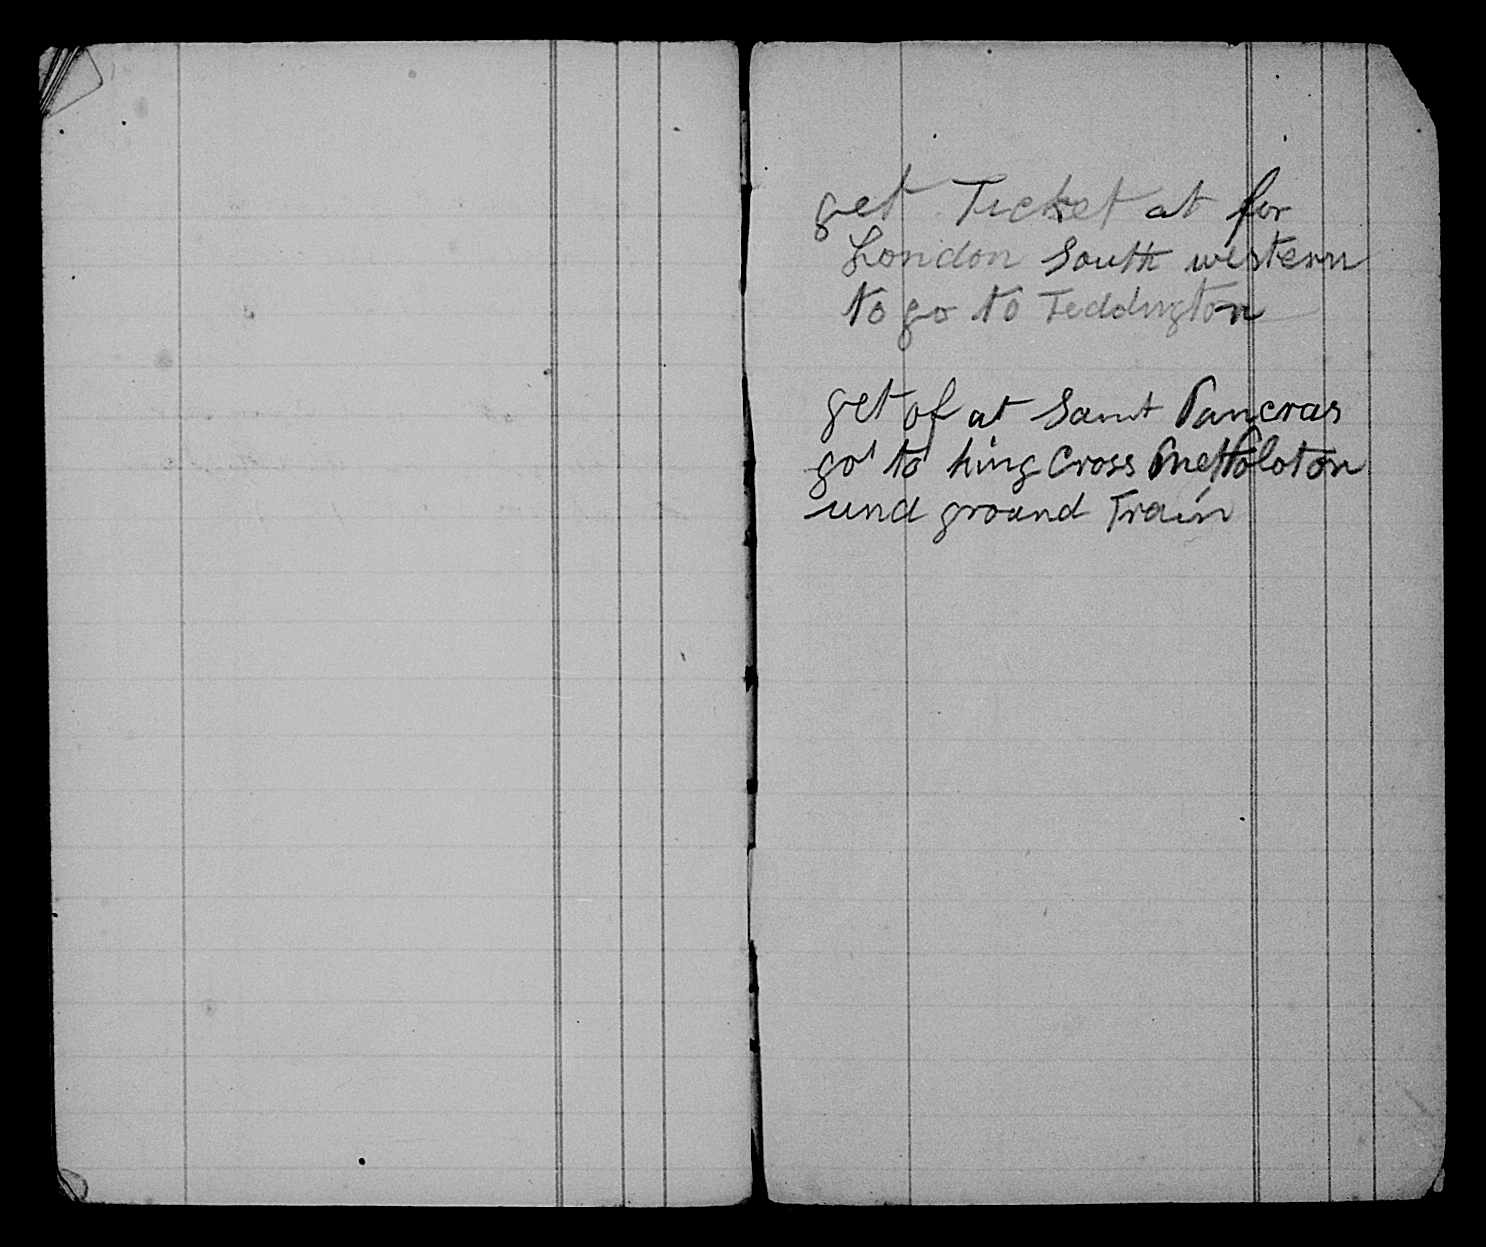 get Ticket at for
London South western
to go to Teddington
get of at Saint Pancras
go to king Cross Mettoloton
und ground Train